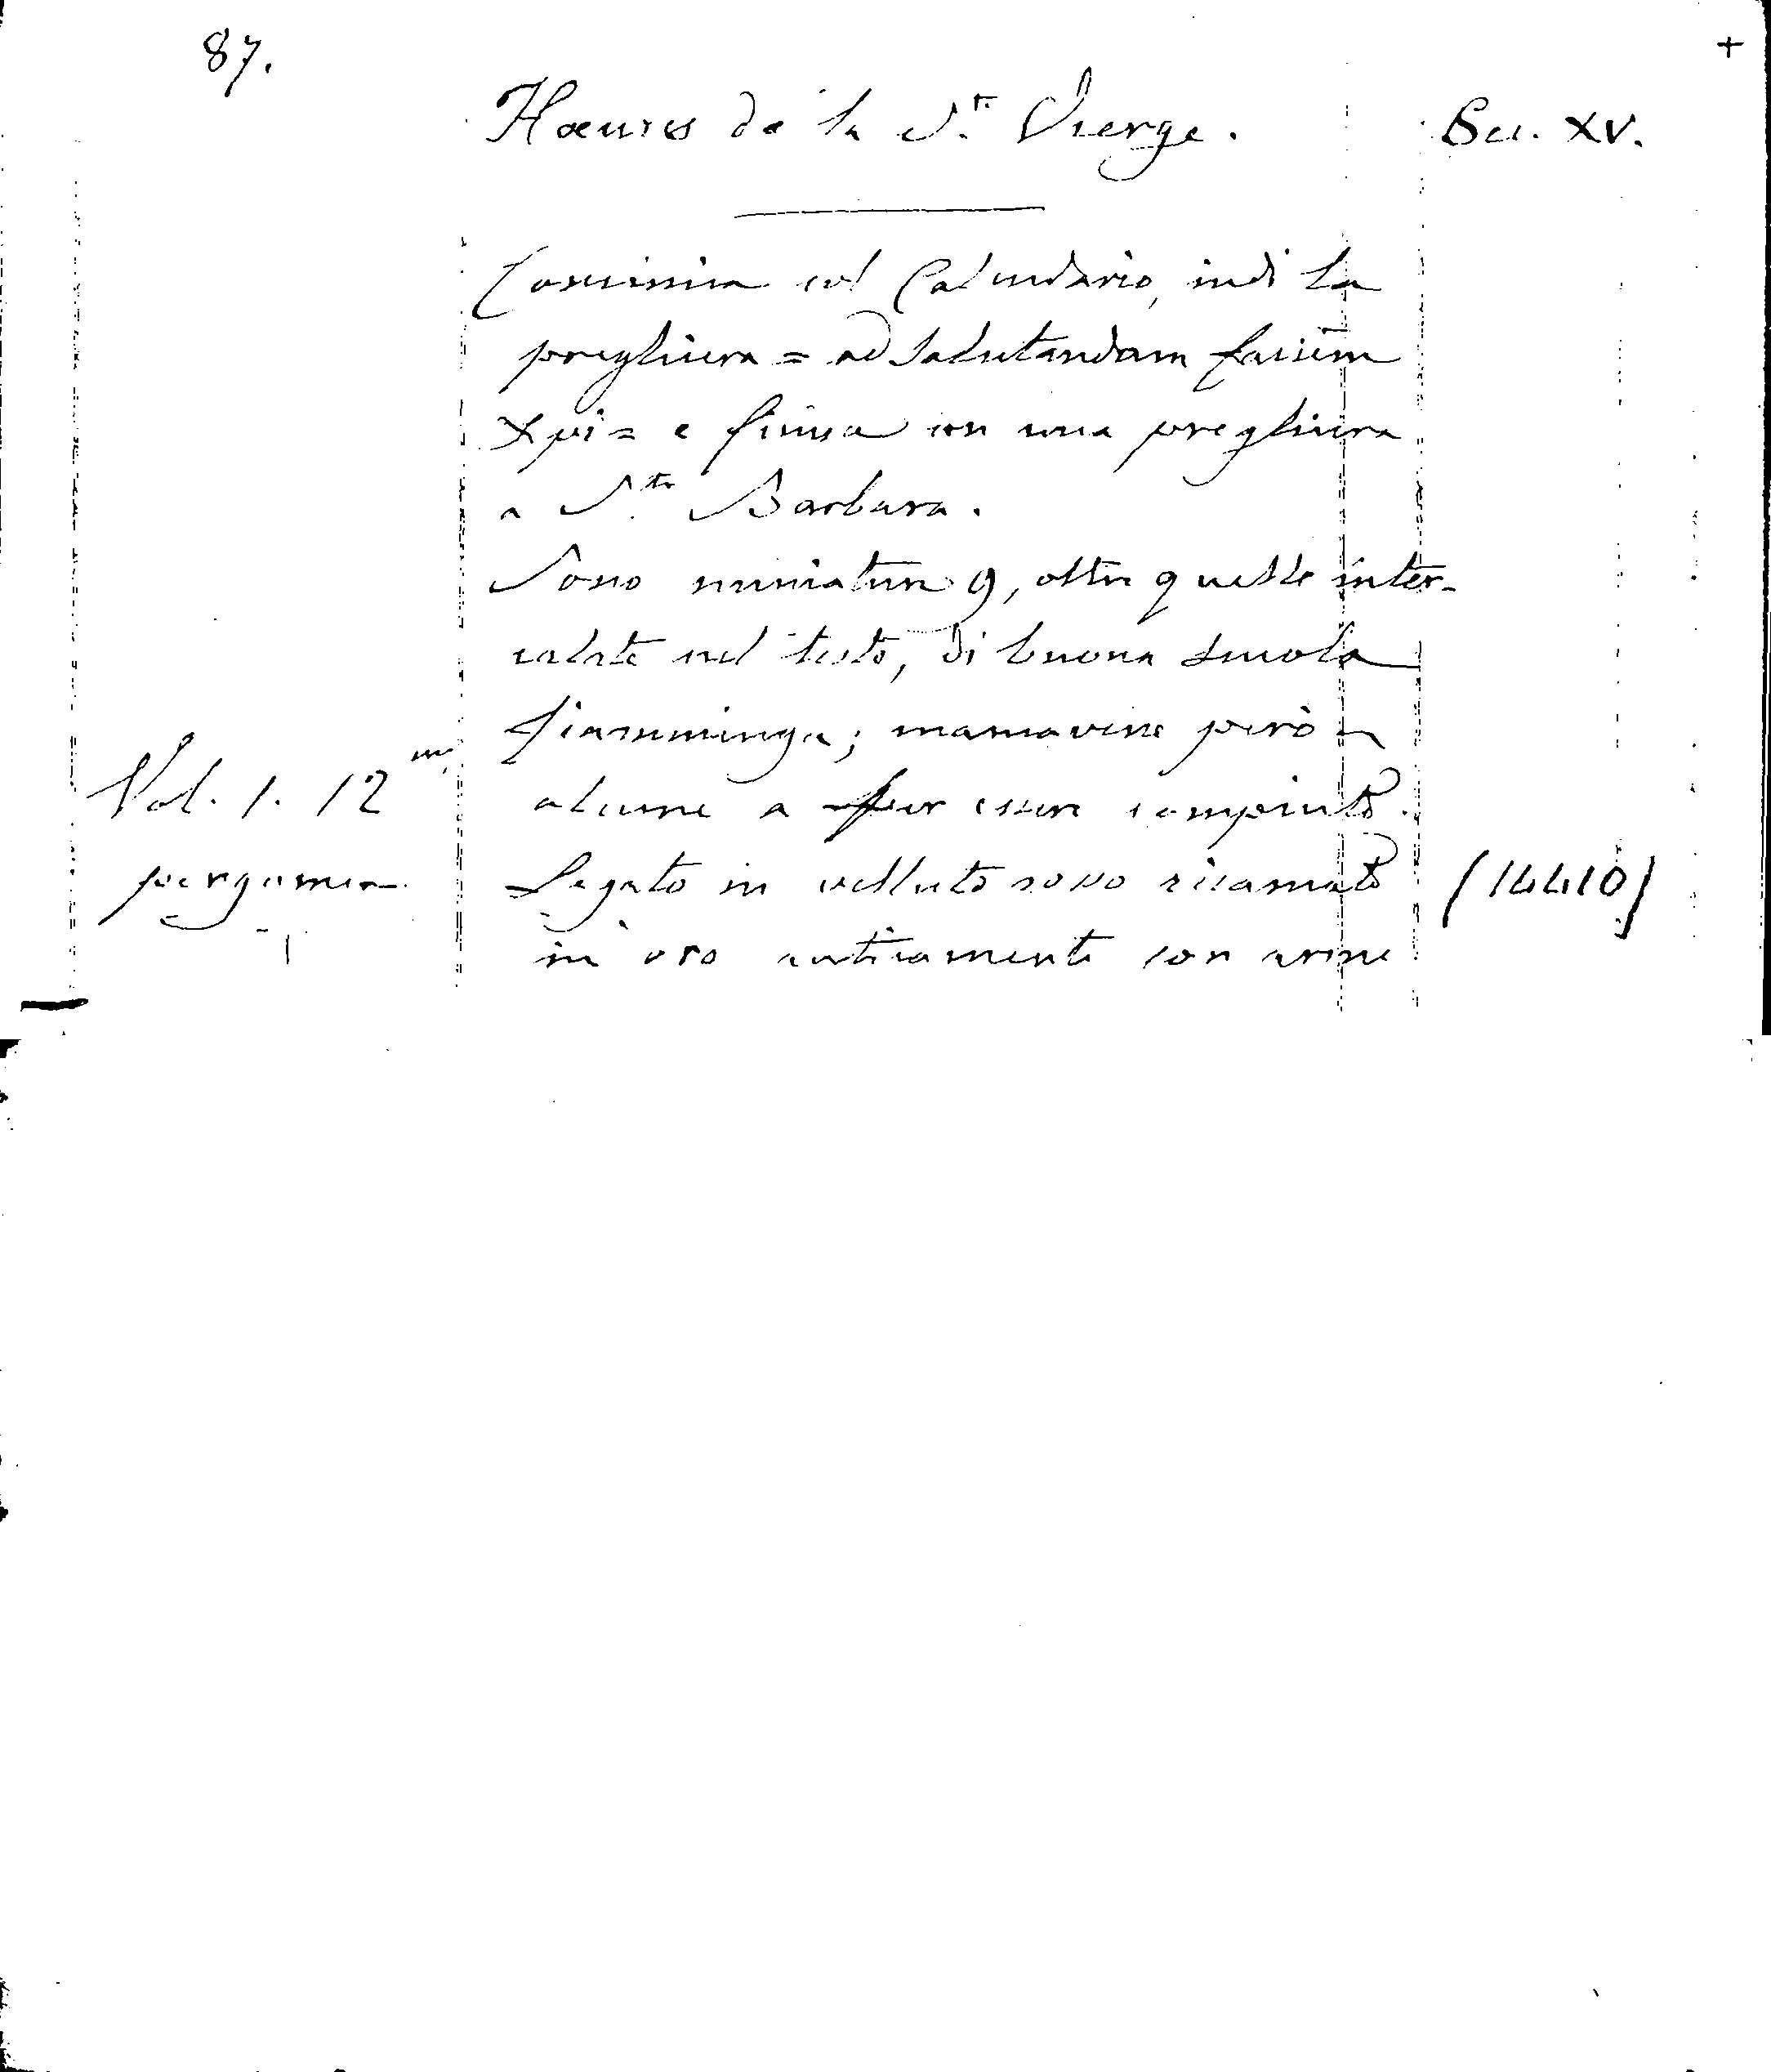 87. +
Hœures de la S.te Vierge. Sec. XV.
Comincia col Calendario, indi la
preghiera = ad salutandam faciem
Xpi = e finisce con una preghiera
a S.ta Barbara.
Sono miniature 9, oltre quelle inter-
calate nel testo, di buona scuola
fiamminga;  però
Vol. 1. 12mo alcune a per essere compiuto.
pergamena Legato in velluto novo ricamato (14410)
in oro anticamente con arme